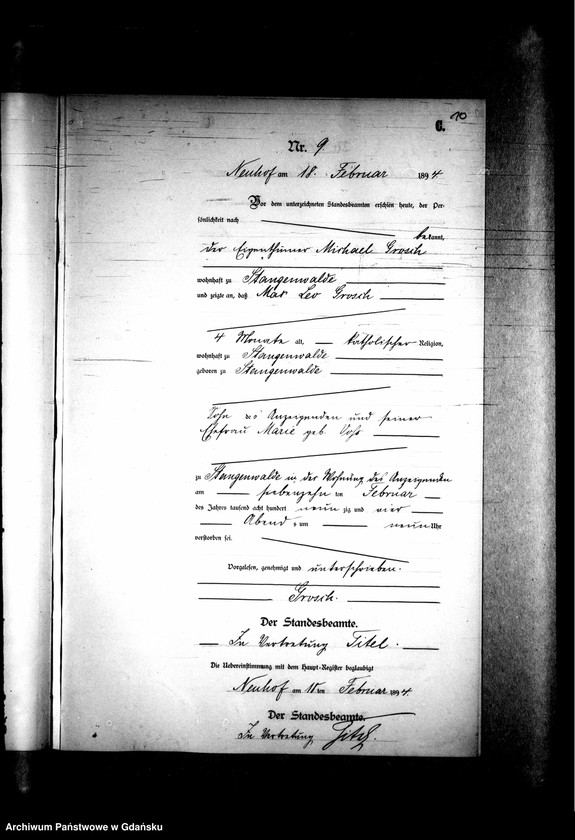 10
C.
Nr. 9.
Neuhof am 18. Februar 1894
Vor dem unterzeichneten Standesbeamten erschien heute, der Per-
sönlichkeit nach
bekannt,
der Eigenthümer Michael Grosch
wohnhaft zu Stangenwalde
und zeigte an, daß Max Leo Grosch
4 Monate alt, katholischer Religion,
wohnhaft zu Stangenwalde
geboren zu Stangenwalde
Sohn des Anzeigenden und seiner
Ehefrau Marie geb.
zu Stangenwalde in der Wohnung des Anzeigenden
am siebenzehn ten Februar
des Jahres tausend acht hundert neunzig und vier
Abends um neun Uhr
verstorben sei.
Vorgelesen, genehmigt und unterschrieben.
Grosch.
Der Standesbeamte.
In Vertretung Titel.
Die Uebereinstimmung mit dem Haupt-Register beglaubigt
Neuhof am 18 ten Februar 1894.
Der Standesbeamte.
In Vertretung
Archiwum Państwowe w Gdańsku